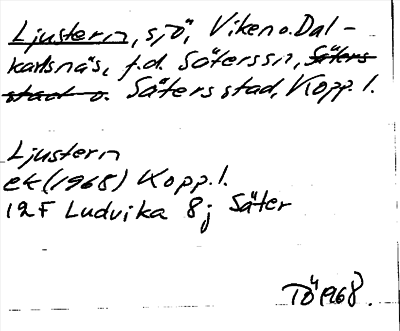 Ljustern, sjö, Viken o. Dal-
karlsnäs, f.d. Säters sn, Säters
stad o. Säters stad, Kopp. l.
Ljustern
ek (1968) Kopp. l.
12F Ludvika 8j Säter
TÖ 1968.